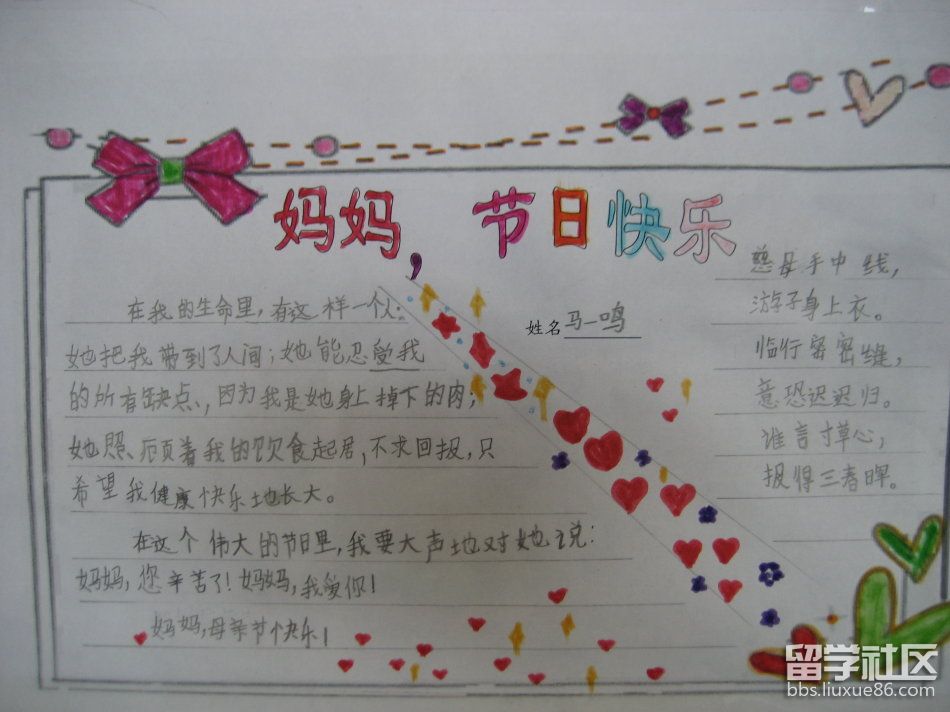 妈妈,节日快乐
姓名马一鸣
在我的生命里,有这样一个人:
她把我带到了人间;她能忍受我
的所有缺点,因为我是她身上掉下的肉;
她照顾着我的饮食起居,不求回报,只
希望我健康快乐地长大。
在这个伟大的节日里,我要大声地对她说:
妈妈,您辛苦了!妈妈,我爱你!
妈妈,母亲节快乐!
慈母手中线,
游子身上衣。
临行密密缝,
意恐迟迟归。
谁言寸草心,
报得三春晖。
留学社区
bbs.liuxue86.com